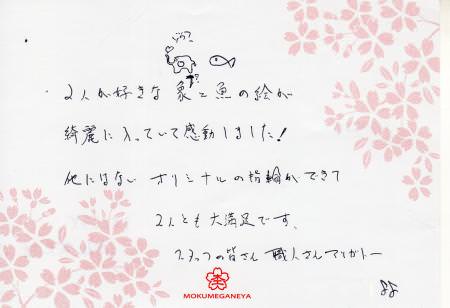 ゾウ?
2人が好きな 象と魚の絵が
綺麗に入っていて感動しました!
他にはない オリジナルの指輪ができて
2人とも大満足です。
スタッフの皆さん 職人さんアリガトー
MOKUMEGANEYA